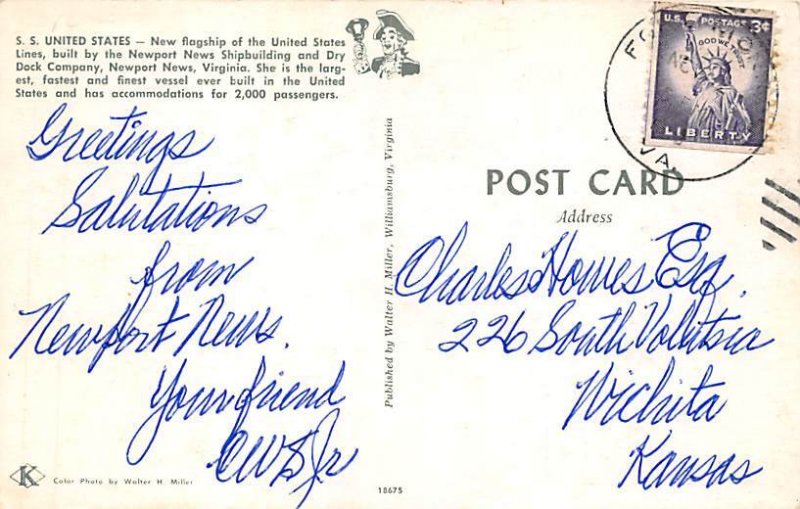 S. S. UNITED STATES — New flagship of the United States
Lines, built by the Newport News Shipbuilding and Dry
Dock Company, Newport News, Virginia. She is the larg-
est, fastest and finest vessel ever built in the United
States and has accommodations for 2,000 passengers.
Greetings
Salutations
from
Newport News.
Your friend
CWS Jr
K
Color Photo by Walter H. Miller
Published by Walter H. Miller, Williamsburg, Virginia
18675
U.S. POSTAGE 3¢
IN GOD WE TRUST
LIBERTY
VA.
POST CARD
Address
Charles Howes Esq.
226 South Volutsia
Wichita
Kansas